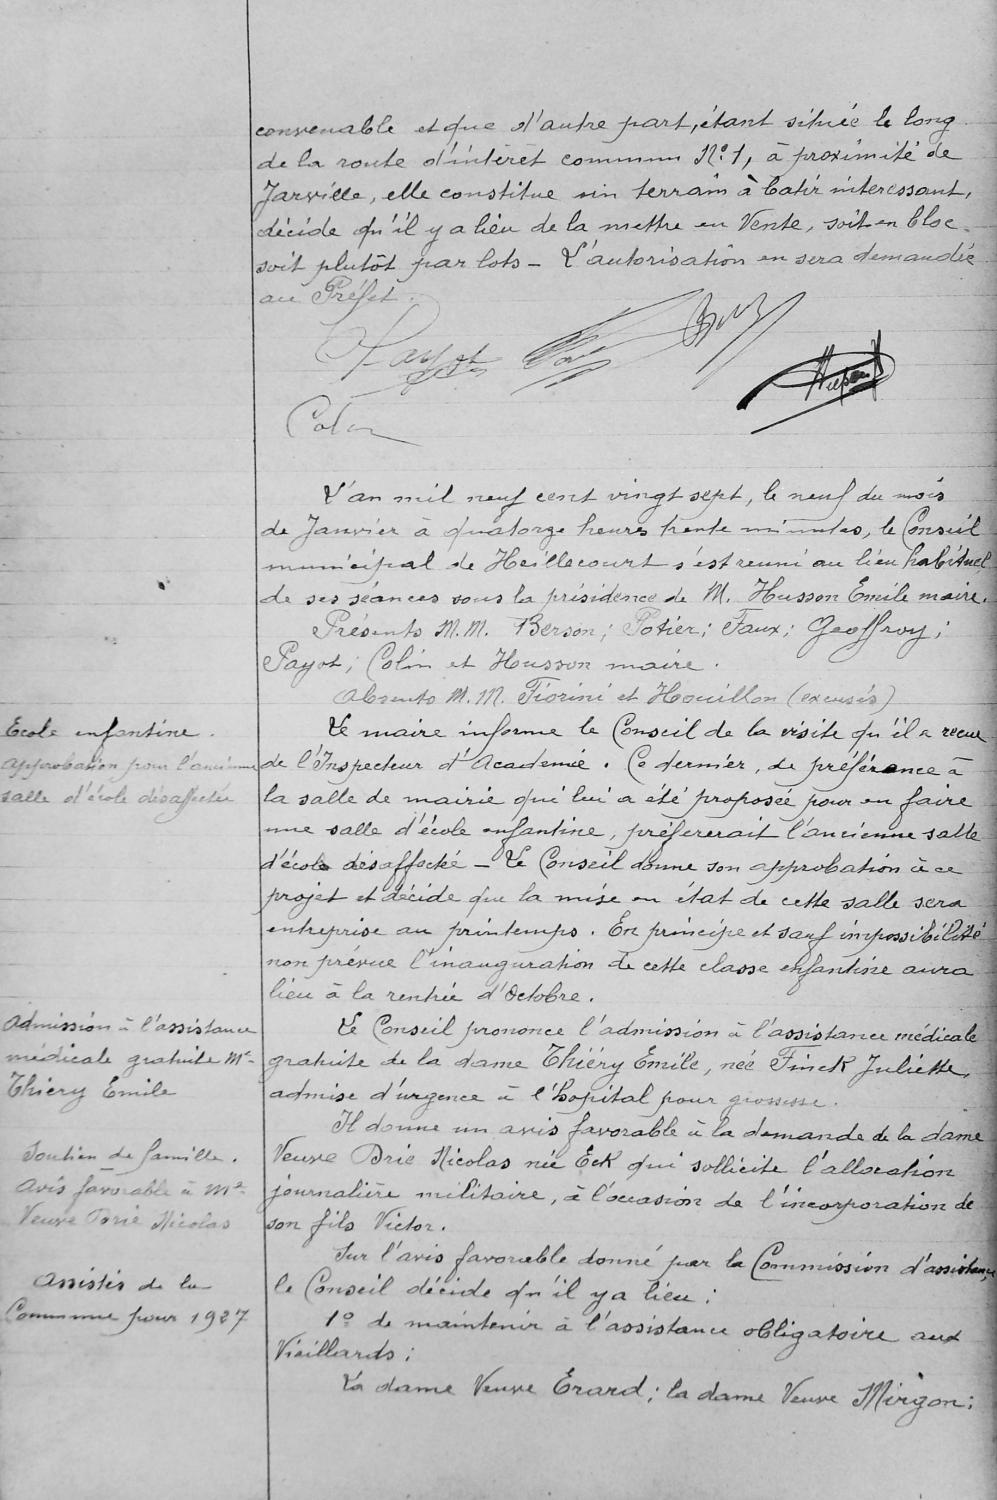 convenable et que d'autre part, étant située le long
de la route d'intérêt commun N° 1, à proximité de
Jarville, elle constitue un terrain à batir interessant,
décide qu'il y a lieu de la mettre en Vente, soit en bloc
soit plutôt par lots - L'autorisation en sera demandée
au Préfet.
Payot
Husson
Colin
L'an mil neuf cent vingt sept, le neuf du mois
de Janvier à quatorze heures trente minutes, le Conseil
municipal de Heillecourt s'est reuni au lieu habituel
de ses séances sous la présidence de M. Husson Emile maire.
Présents M.M. Berson; Potier; Faux; Geoffroy;
Payot; Colin et Husson maire.
Absents M.M. Fiorini et Houillon (excusés)
Ecole enfantine.
approbation pour l'ancienne
salle d'école désaffectée
Le maire informe le Conseil de la visite qu'il a recue
de l'Inspecteur d'Academie. Ce dernier, de préférence à
la salle de mairie qui lui a été proposée pour en faire
une salle d'école enfantine, préfererait l'ancienne salle
d'école désaffecté - Le Conseil donne son approbation à ce
projet et décide que la mise en état de cette salle sera
entreprise au printemps. En principe et sauf impossibilité
non prévue l'inauguration de cette classe enfantine aura
lieu à la rentrée d'Octobre.
Admission à l'assistance
médicale gratuite Me
Thiery Emile
Le Conseil prononce l'admission à l'assistance médicale
gratuite de la dame Thiéry Emile, née Finck Juliette,
admise d'urgence à l'hopital pour grossesse.
Soutien de famille.
Avis favorable à Me
Veuve Brie Nicolas
Il donne un avis favorable à la demande de la dame
Veuve Brie Nicolas née Eck qui sollicite l'allocation
journalière militaire, à l'occasion de l'incorporation de
son fils Victor.
Assistés de la
Commune pour 1927
Sur l'avis favorable donné par la Commission d'assistance
le Conseil décide qu'il y a lieu:
1° de maintenir à l'assistance obligatoire aux
Vieillards:
La dame Veuve Erard; la dame Veuve Mirgon;